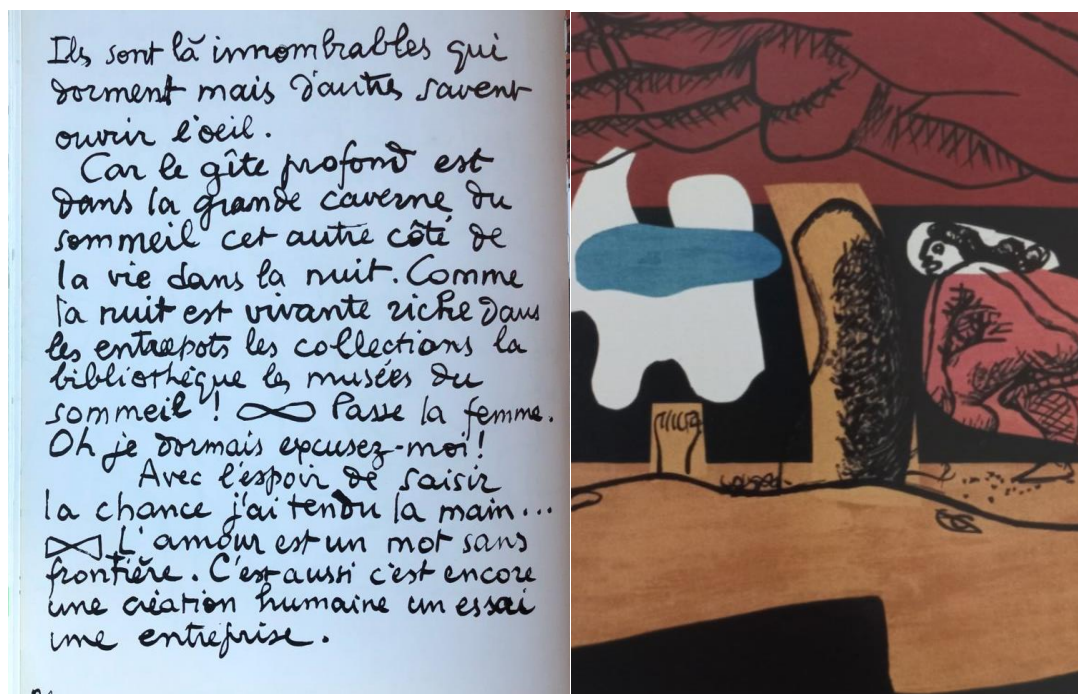 Ils sont là innombrables qui
dorment mais d'autres savent
ouvrir l'oeil.
Car le gîte profond est
dans la grande caverne du
sommeil cet autre côté de
la vie dans la nuit. Comme
la nuit est vivante riche dans
les entrepots les collections la
bibliothèque les musées du
sommeil ! ∞ Passe la femme.
Oh je dormais excusez-moi !
Avec l'espoir de saisir
la chance j'ai tendu la main...
L'amour est un mot sans
frontière. C'est aussi c'est encore
une création humaine un essai
une entreprise.